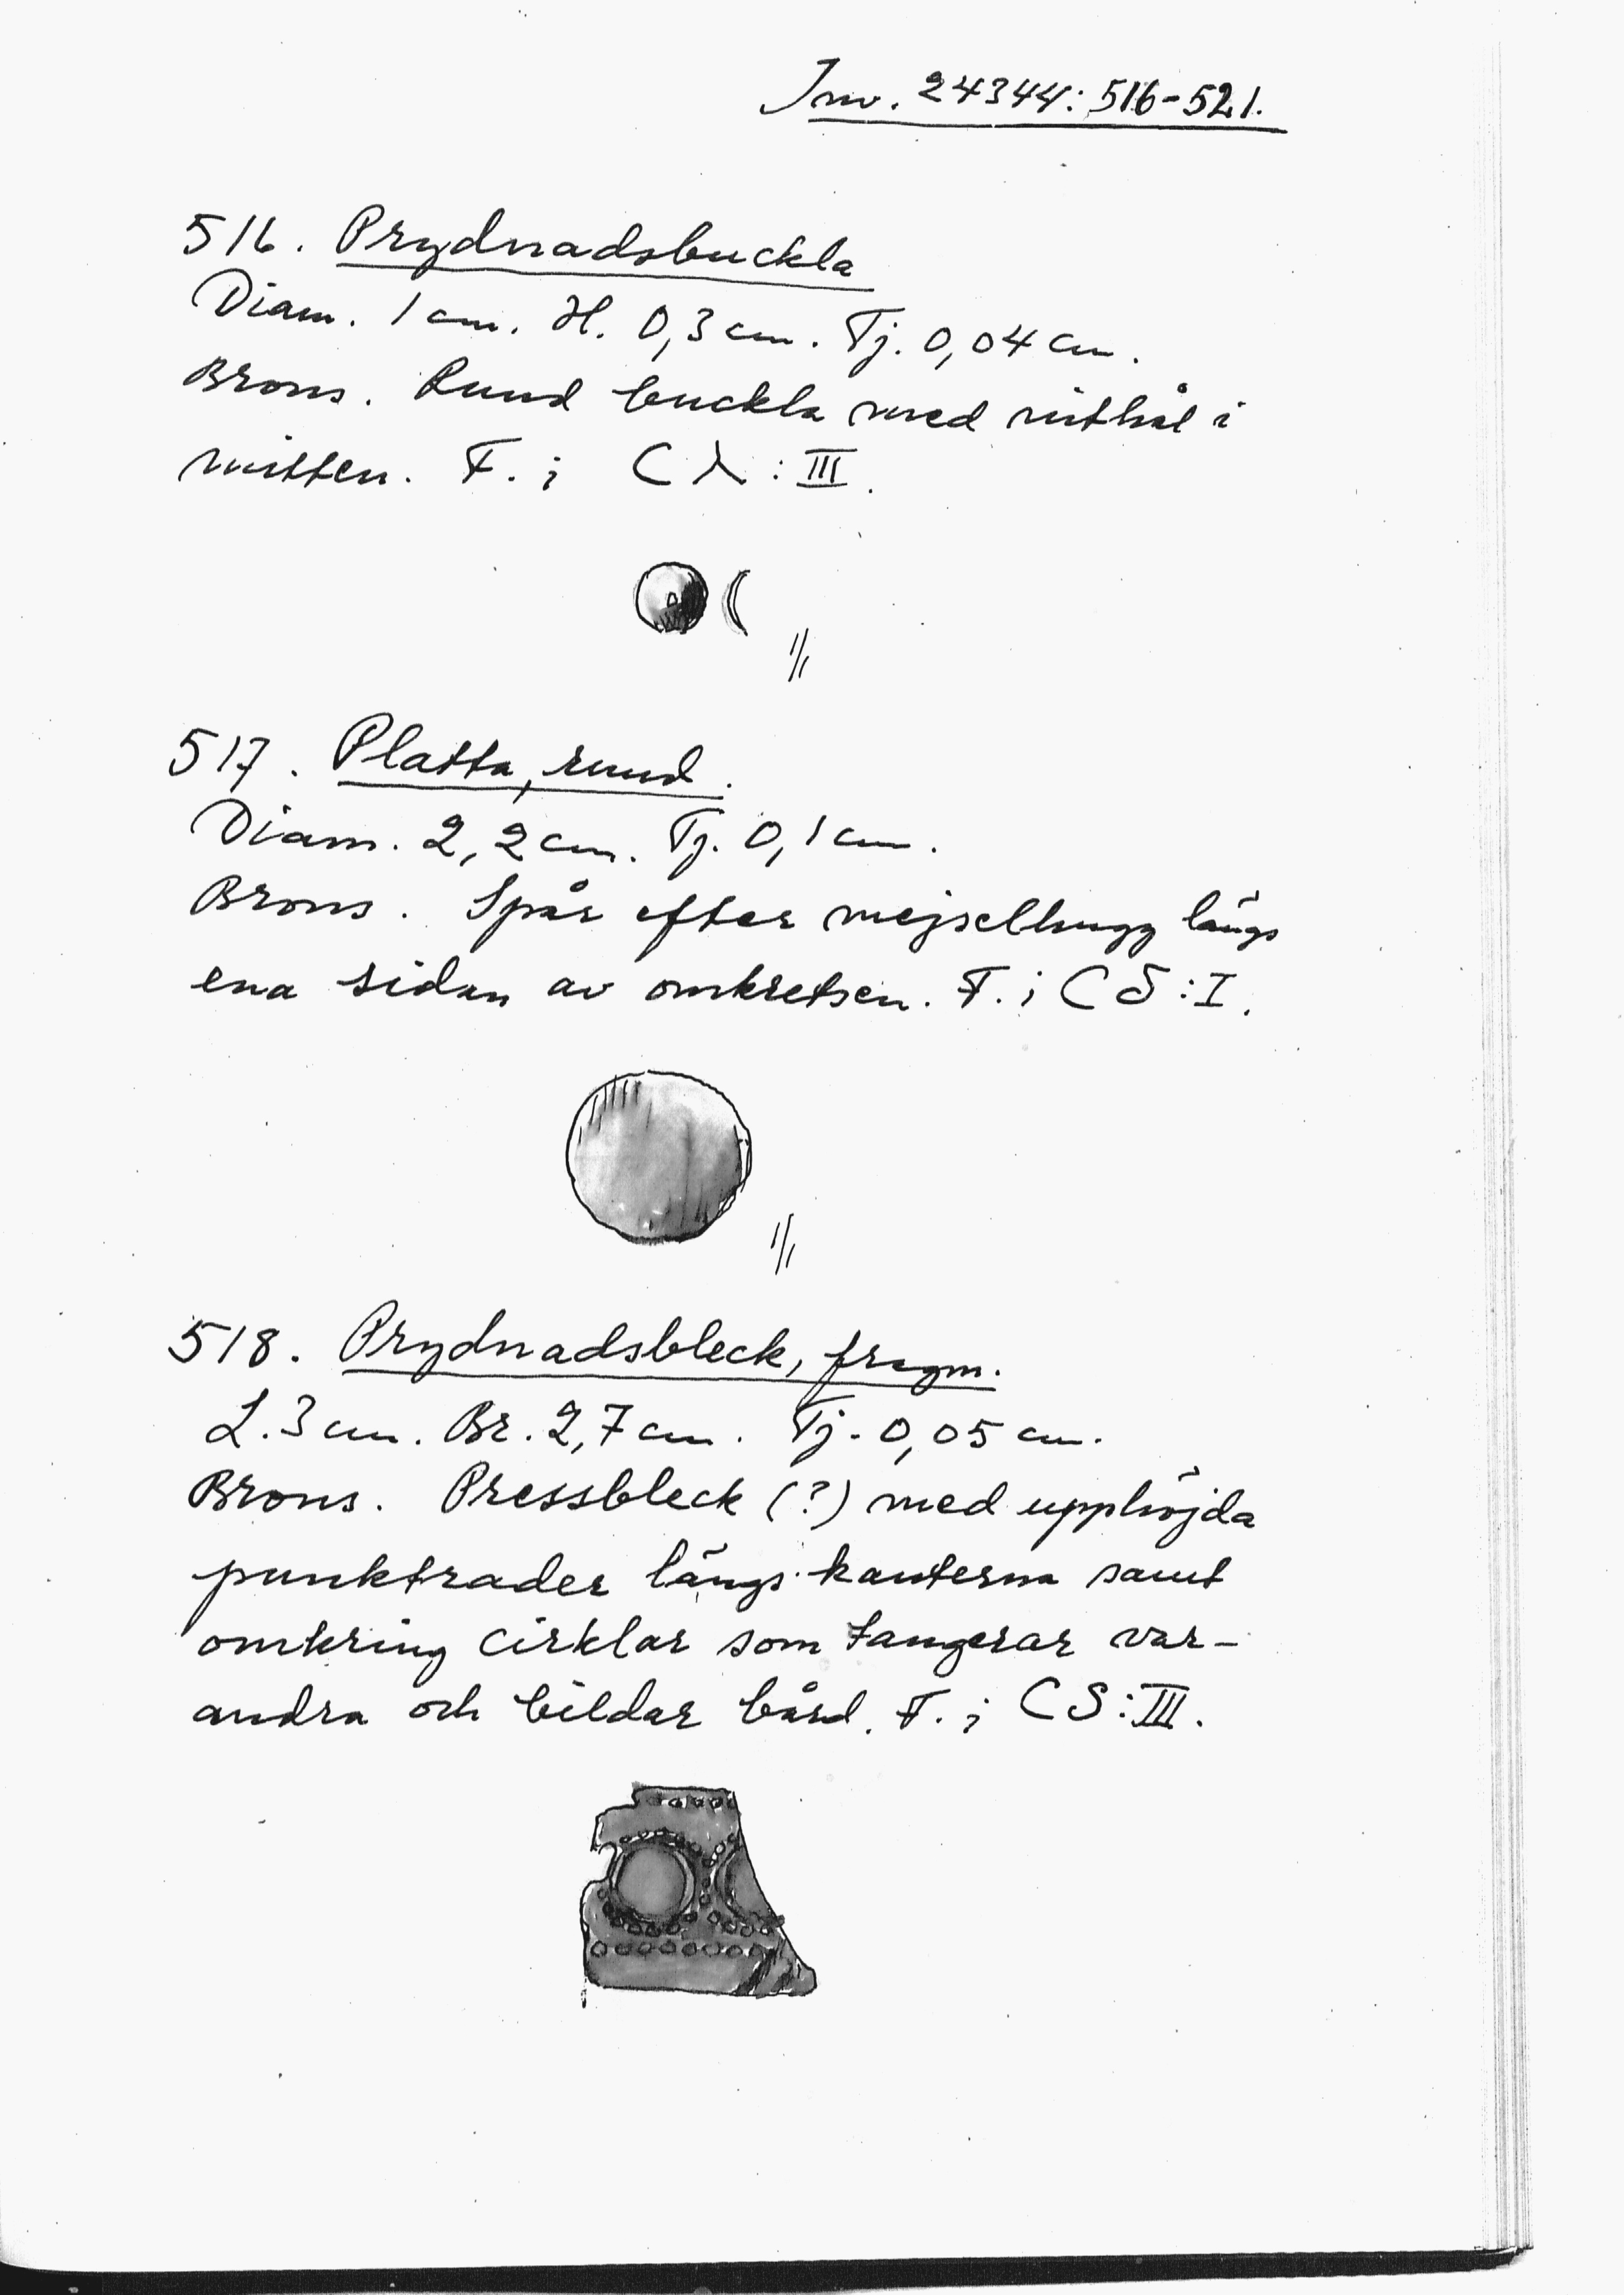 Inv. 24344: 516-521.
516. Prydnadsbuckla
Diam. 1 cm. H. 0,3 cm. Tj. 0,04 cm.
Brons. Rund buckla med nithål i
mitten. F. i Cλ:III.
1/1
517. Platta, rund.
Diam. 2,2 cm. Tj. 0,1 cm.
Brons. Spår efter mejselhugg längs
ena sidan av omkretsen. F. i Cδ:I.
1/1
518. Prydnadsbleck, fragm.
L. 3 cm. Br. 2,7 cm. Tj. 0,05 cm.
Brons. Pressbleck (?) med upphöjda
punktrader längs kanterna samt
omkring cirklar som tangerar var-
andra och bildar bård. F. i CS:III.